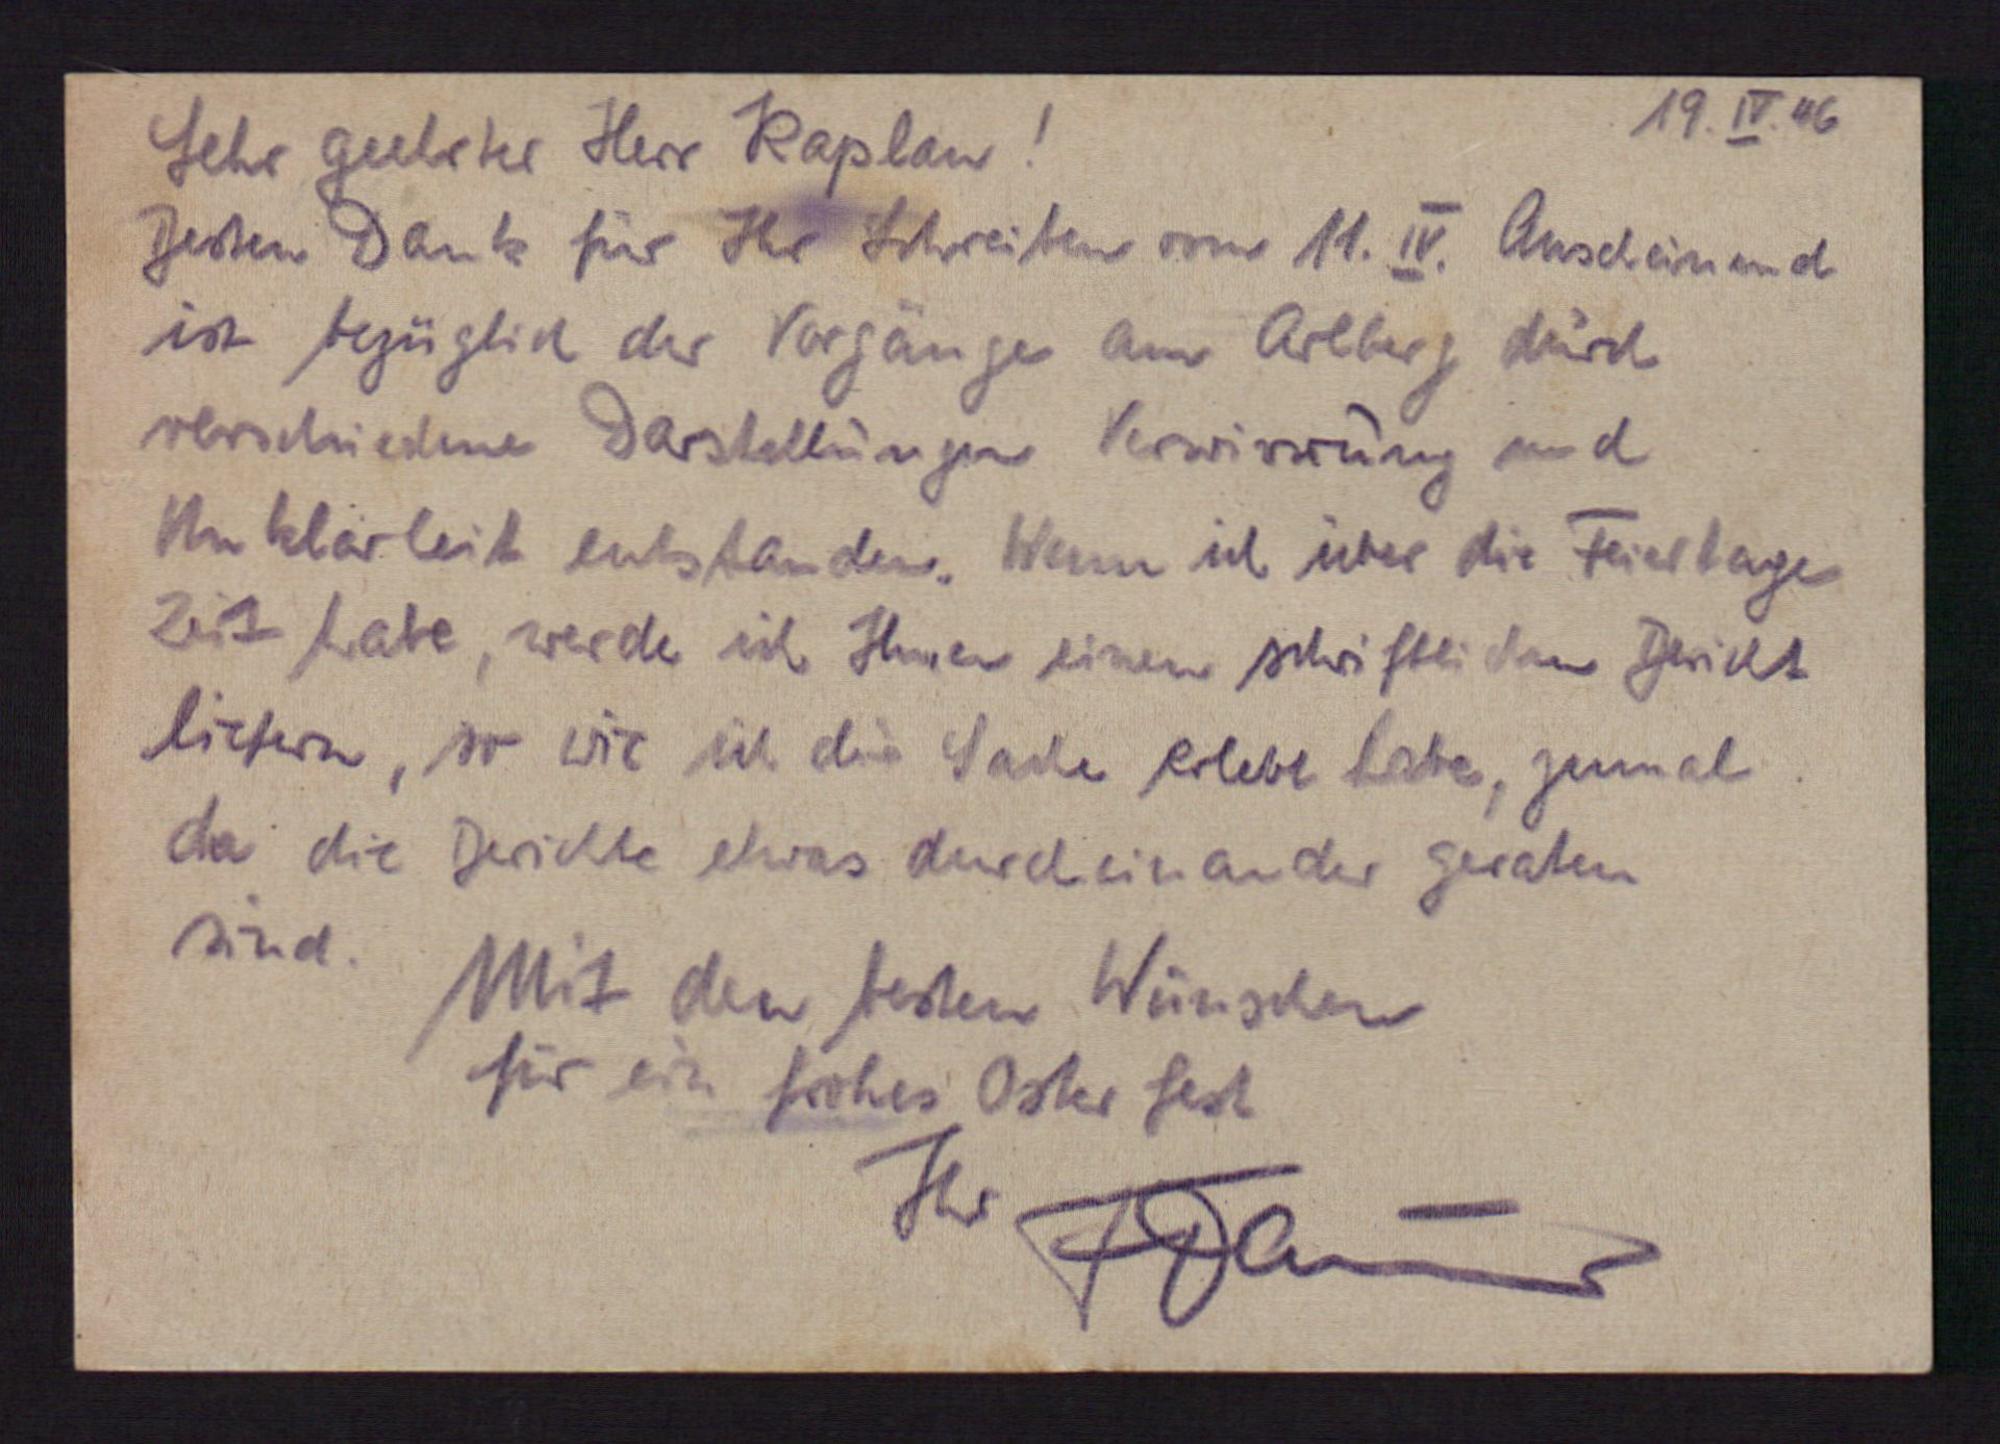 19. IV. 46
Sehr geehrter Herr Kaplan!
Besten Dank für Ihr Schreiben vom 11. IV. Anscheinend
ist bezüglich der Vorgänge am Arlberg durch
verschiedene Darstellungen Verwirrung und
Unklarheit entstanden. Wenn ich über die Feiertage
Zeit habe, werde ich Ihnen einen schriftlichen Bericht
liefern, so wie ich die Sache erlebt habe, zumal
da die Berichte etwas durcheinander geraten
sind.
Mit den besten Wünschen
für ein frohes Osterfest
Ihr